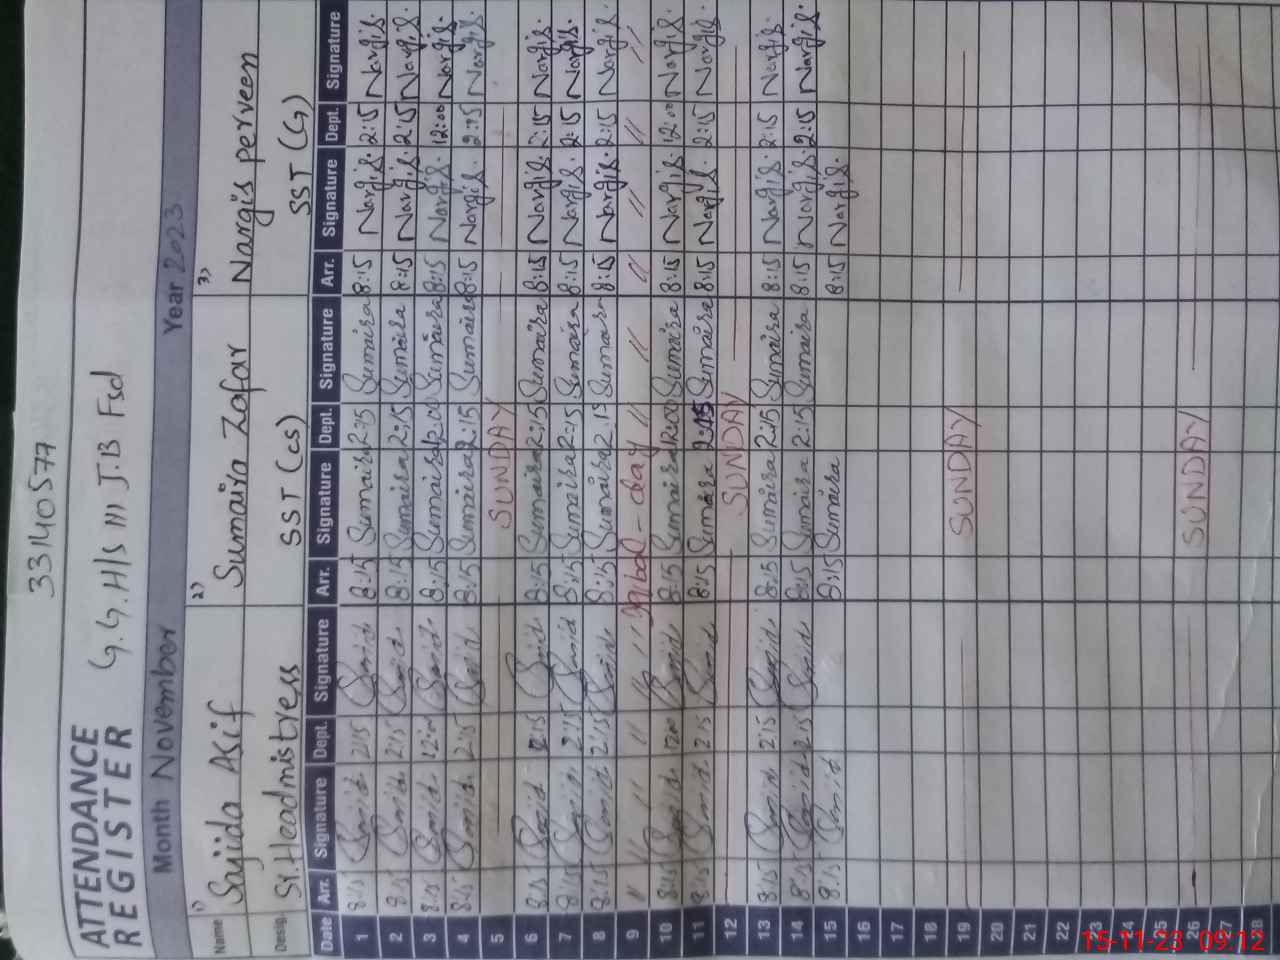 33140577
ATTENDANCE REGISTER G.G.H/S 111 J.B Fsd
Month November Year 2023
Name 1) Sajida Asif 2) Sumaira Zafar 3) Nargis perveen
Desig. Sr. Headmistress SST (cs) SST (G)
Date Arr. Signature Dept. Signature Arr. Signature Dept. Signature Arr. Signature Dept. Signature
1 8:15 2:15 8:15 Sumaira 2:15 Sumaira 8:15 Nargis. 2:15 Nargis.
2 8:15 2:15 8:15 Sumaira 2:15 Sumaira 8:15 Nargis. 2:15 Nargis.
3 8:15 12:00 8:15 Sumaira 12:00 Sumaira 8:15 Nargis. 12:00 Nargis.
4 8:15 2:15 8:15 Sumaira 2:15 Sumaira 8:15 Nargis. 2:15 Nargis.
5 SUNDAY
6 8:15 2:15 8:15 Sumaira 2:15 Sumaira 8:15 Nargis. 2:15 Nargis.
7 8:15 2:15 8:15 Sumaira 2:15 Sumaira 8:15 Nargis. 2:15 Nargis.
8 8:15 2:15 8:15 Sumaira 2:15 Sumaira 8:15 Nargis. 2:15 Nargis.
9 " " " " Iqbal - day " " " " " "
10 8:15 12:00 8:15 Sumaira 12:00 Sumaira 8:15 Nargis. 12:00 Nargis.
11 8:15 2:15 8:15 Sumaira 2:15 Sumaira 8:15 Nargis. 2:15 Nargis.
12 SUNDAY
13 8:15 2:15 8:15 Sumaira 2:15 Sumaira 8:15 Nargis. 2:15 Nargis.
14 8:15 2:15 8:15 Sumaira 2:15 Sumaira 8:15 Nargis. 2:15 Nargis.
15 8:15 8:15 Sumaira 8:15 Nargis.
16
17
18
19 SUNDAY
20
21
22
23
24
25
26 SUNDAY
27
28
15-11-23 09:12